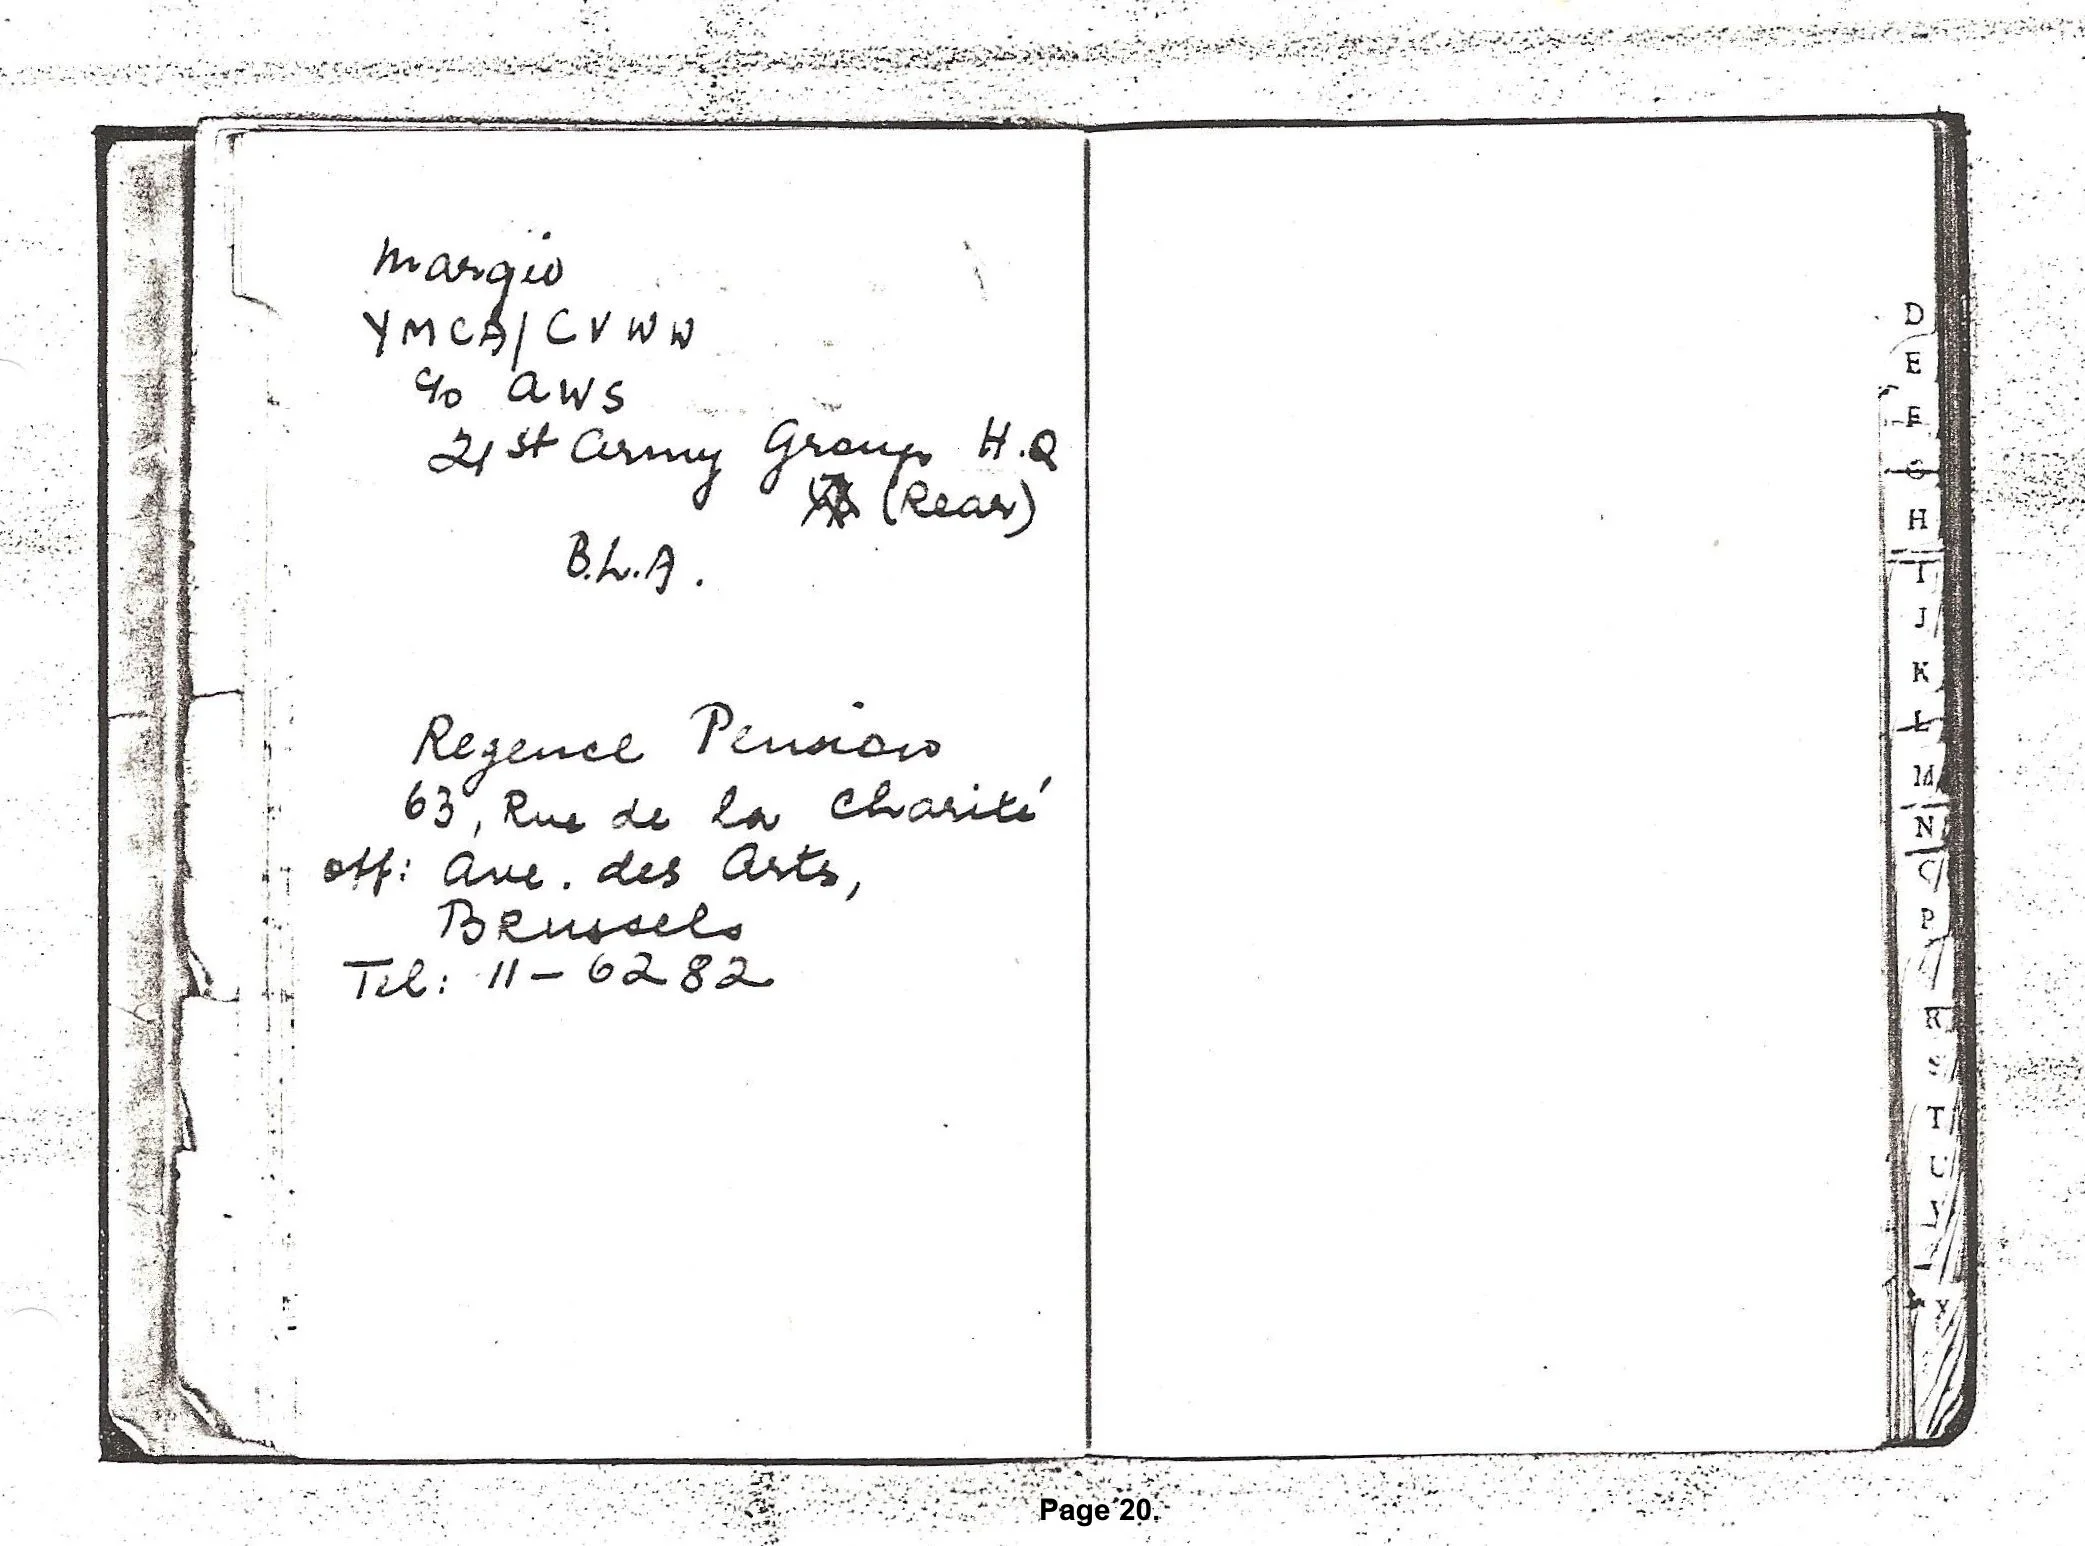 Margio
YMCA/CVWW
c/o AWS
21st Army Group H.Q
(Rear)
B.L.A.
Regence Pension
63, Rue de la Charité
off: Ave. des Arts,
Brussels
Tel: 11-6282
D
E
F
G
H
I
J
K
L
M
N
O
P
R
S
T
U
Y
Page 20.